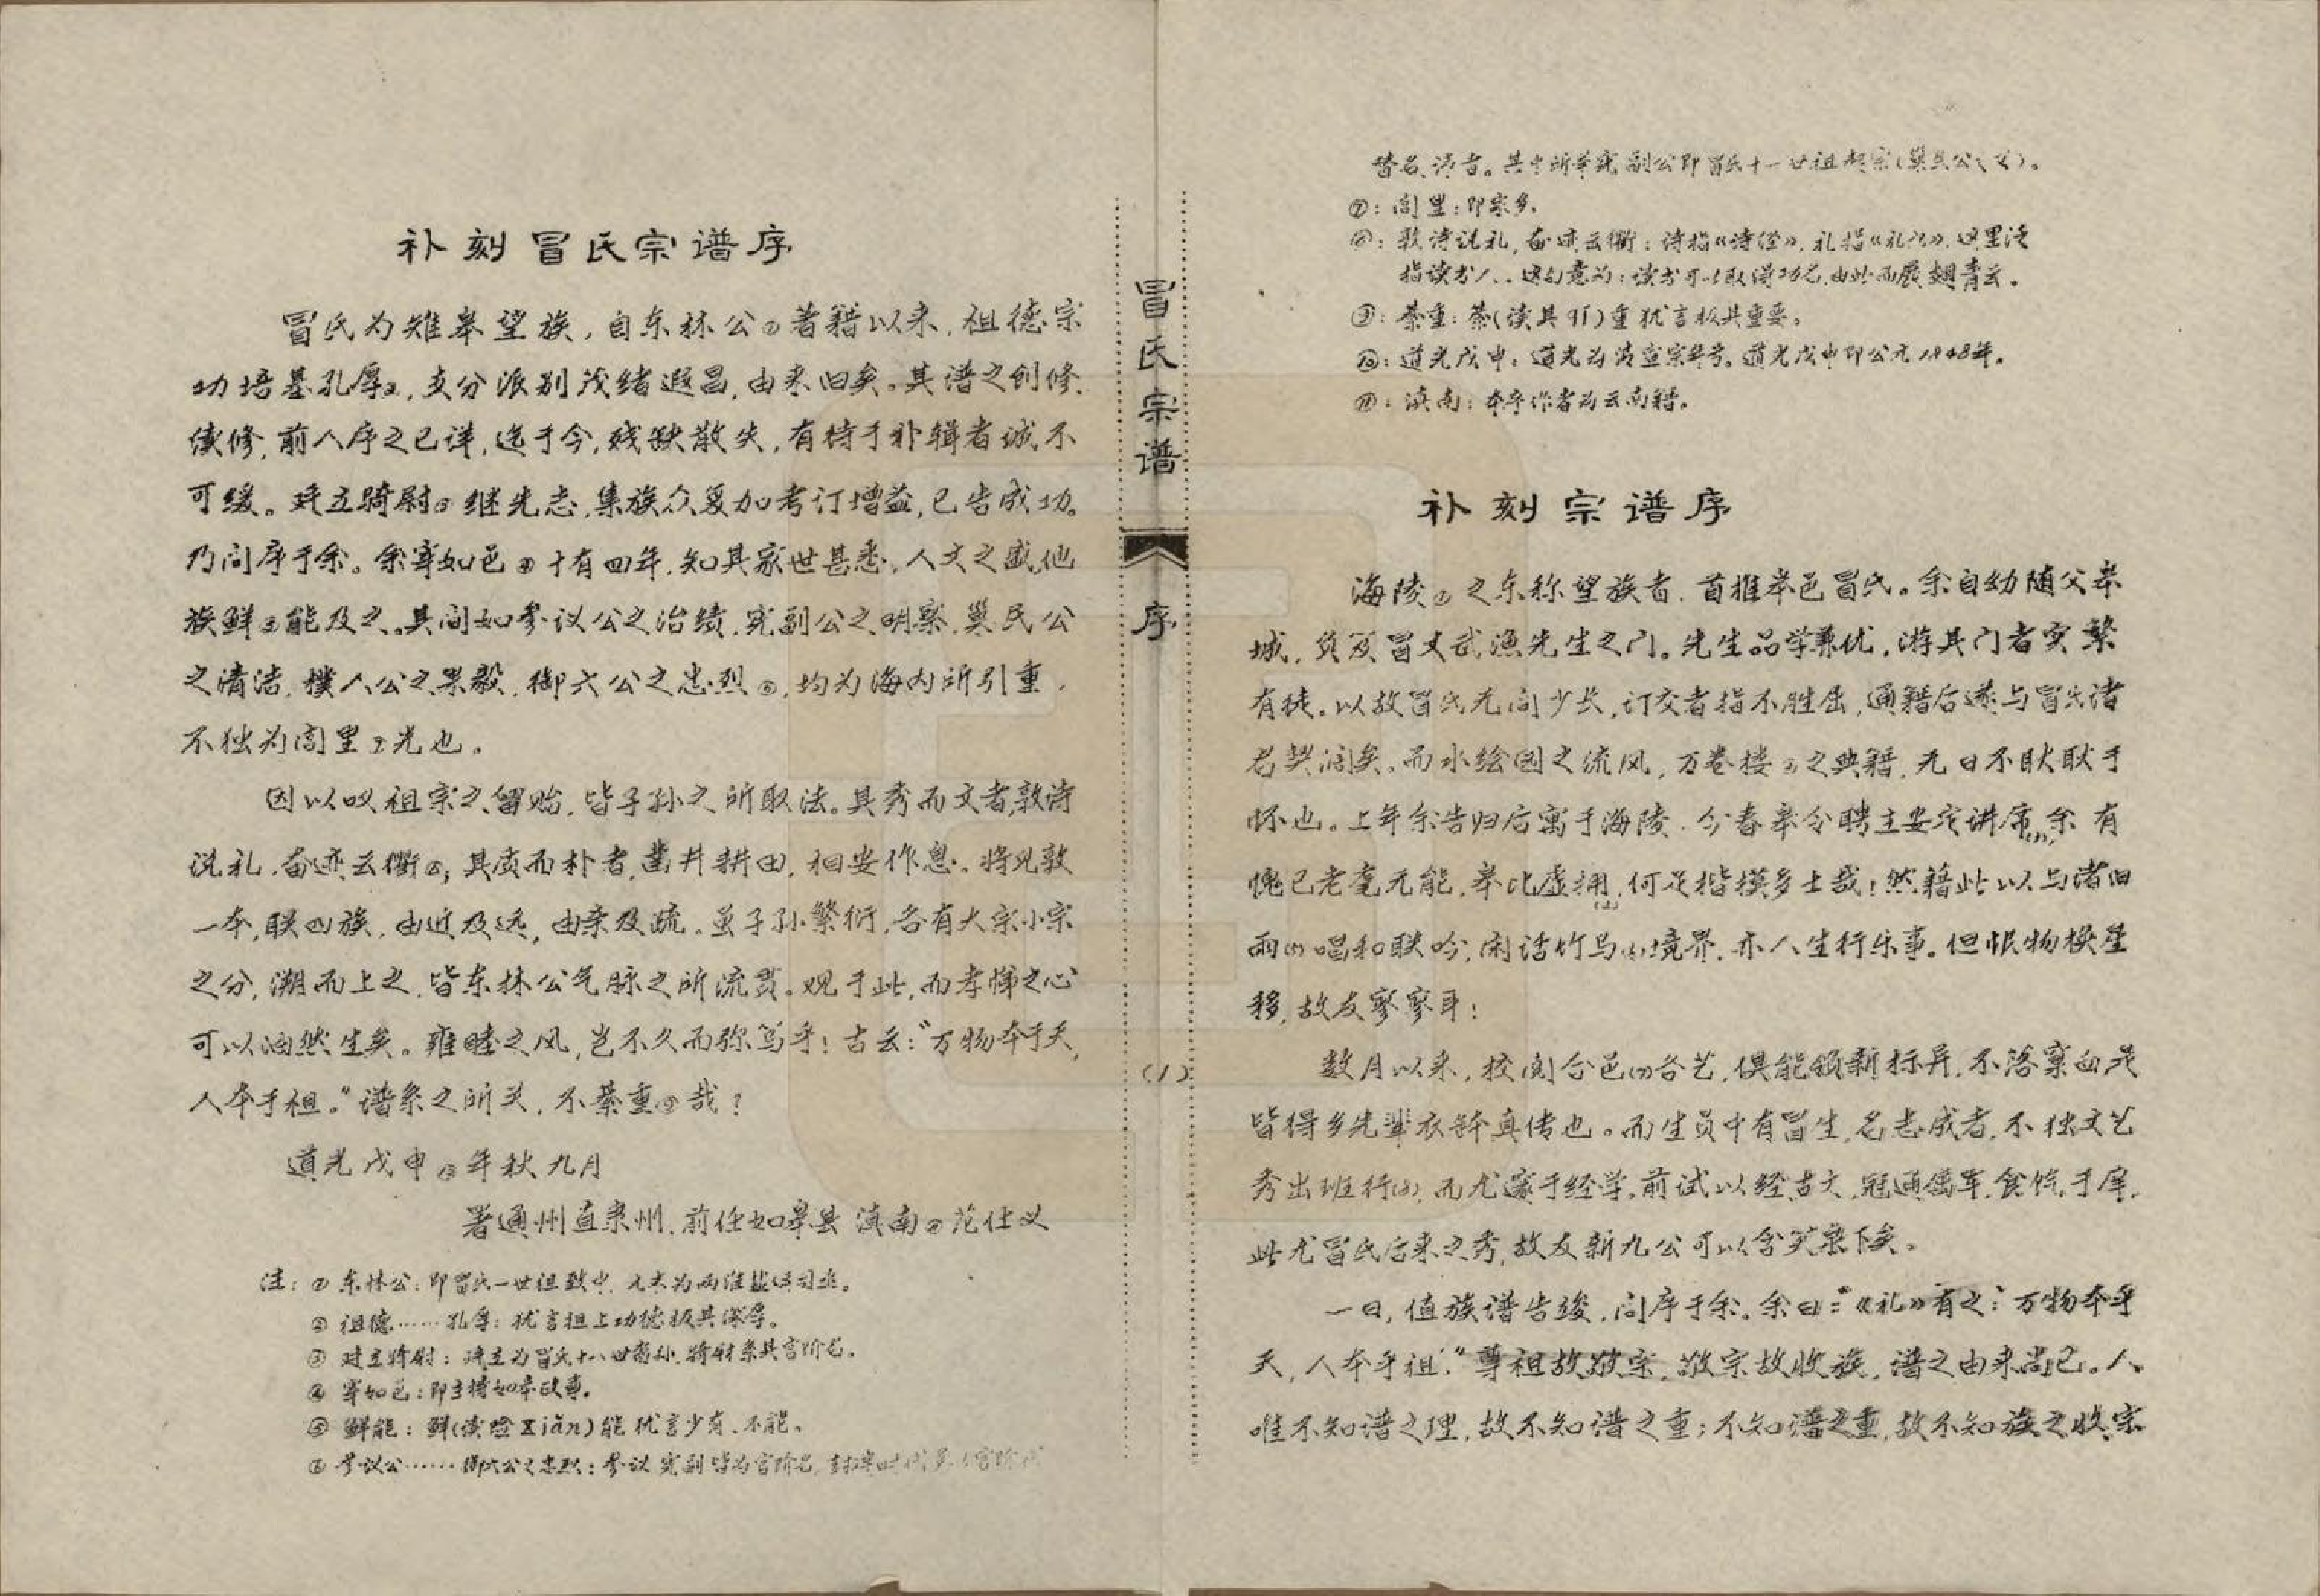 补刻冒氏宗谱序
冒氏为雉皋望族,自东林公①著籍以来,祖德宗
功培基孔厚②,支分派别茂绪遐昌,由来旧矣。其谱之创修、
续修,前人序之已详,迄于今,残缺散失,有待于补辑者诚不
可缓。廷立骑尉③继先志,集族众复加考订增益,已告成功。
乃问序于余。余宰如邑④十有四年,知其家世甚悉,人文之盛,他
族鲜⑤能及之。其间如参议公之治绩,宪副公之明察,巢民公
之清洁,朴人公之果毅,御六公之忠烈⑥,均为海内所引重,
不独为闾里⑦光也。
因以叹祖宗之留贻,皆子孙之所取法。其秀而文者,敦诗
说礼,奋迹云衢⑧;其质而朴者,凿井耕田,相安作息。将见敦
一本,联四族,由近及远,由亲及疏。虽子孙繁衍,各有大宗小宗
之分,溯而上之,皆东林公气脉之所流贯。观于此,而孝悌之心
可以油然生矣。雍睦之风,岂不久而弥笃乎!古云:“万物本于天,
人本于祖。”谱系之所关,不綦重⑨哉?
道光戊申⑩年秋九月
署通州直隶州、前任如皋县 滇南⑪范仕义
注:① 东林公:即冒氏一世祖致中,元末为两淮盐运司丞。
② 祖德……孔厚:犹言祖上功德极其深厚。
③ 廷立骑尉:廷立为冒氏十八世裔孙,骑尉系其官阶名。
④ 宰如邑:即主持如皋政事。
⑤ 鲜能:鲜(读险xiǎn)能犹言少有、不能。
⑥ 参议公……御六公之忠烈:参议 宪副皆为官阶名,封建时代
冒氏宗谱
序
(1)
其中所举宪副公即冒氏十一世祖起宗(巢民公之父)。
⑦:闾里:即家乡。
⑧:敦诗说礼,奋迹云衢:诗指《诗经》,礼指《礼记》,这里泛
指读书人。这句意为:读书可以取得功名,由此而展翅青云。
⑨:綦重:綦(读其qí)重犹言极其重要。
⑩:道光戊申:道光为清宣宗年号。道光戊申即公元1848年。
⑪:滇南:本序作者为云南籍。
补刻宗谱序
海陵①之东称望族者,首推皋邑冒氏。余自幼随父皋
城,负笈冒丈武渔先生之门。先生品学兼优,游其门者实繁
有徒。以故冒氏无问少长,订交者指不胜屈,通籍后遂与冒氏诸
君契阔矣。而水绘园之流风,万卷楼②之典籍,无日不耿耿于
怀也。上年余告归后寓于海陵,今春皋令聘主安定讲席,余有
愧已老耄无能,举比虚拥,何足楷模多士哉!然藉此以与诸旧
雨唱和联吟,闲话竹马境界,亦人生行乐事。但恨物换星
移,故友寥寥耳!
数月以来,校阅合邑各艺,俱能领新标异,不落窠臼是
皆得乡先辈衣钵真传也。而生员中有冒生,名志成者,不独文艺
秀出班行,而尤邃于经学。前试以经古文,冠通属军,食饩于庠,
此尤冒氏后来之秀,故友新九公可以含笑泉下矣。
一日,值族谱告竣,问序于余。余曰:“《礼》有之:万物本乎
天,人本乎祖。”尊祖故敬宗,敬宗故收族,谱之由来尚已。人
唯不知谱之理,故不知谱之重;不知谱之重,故不知族之收宗